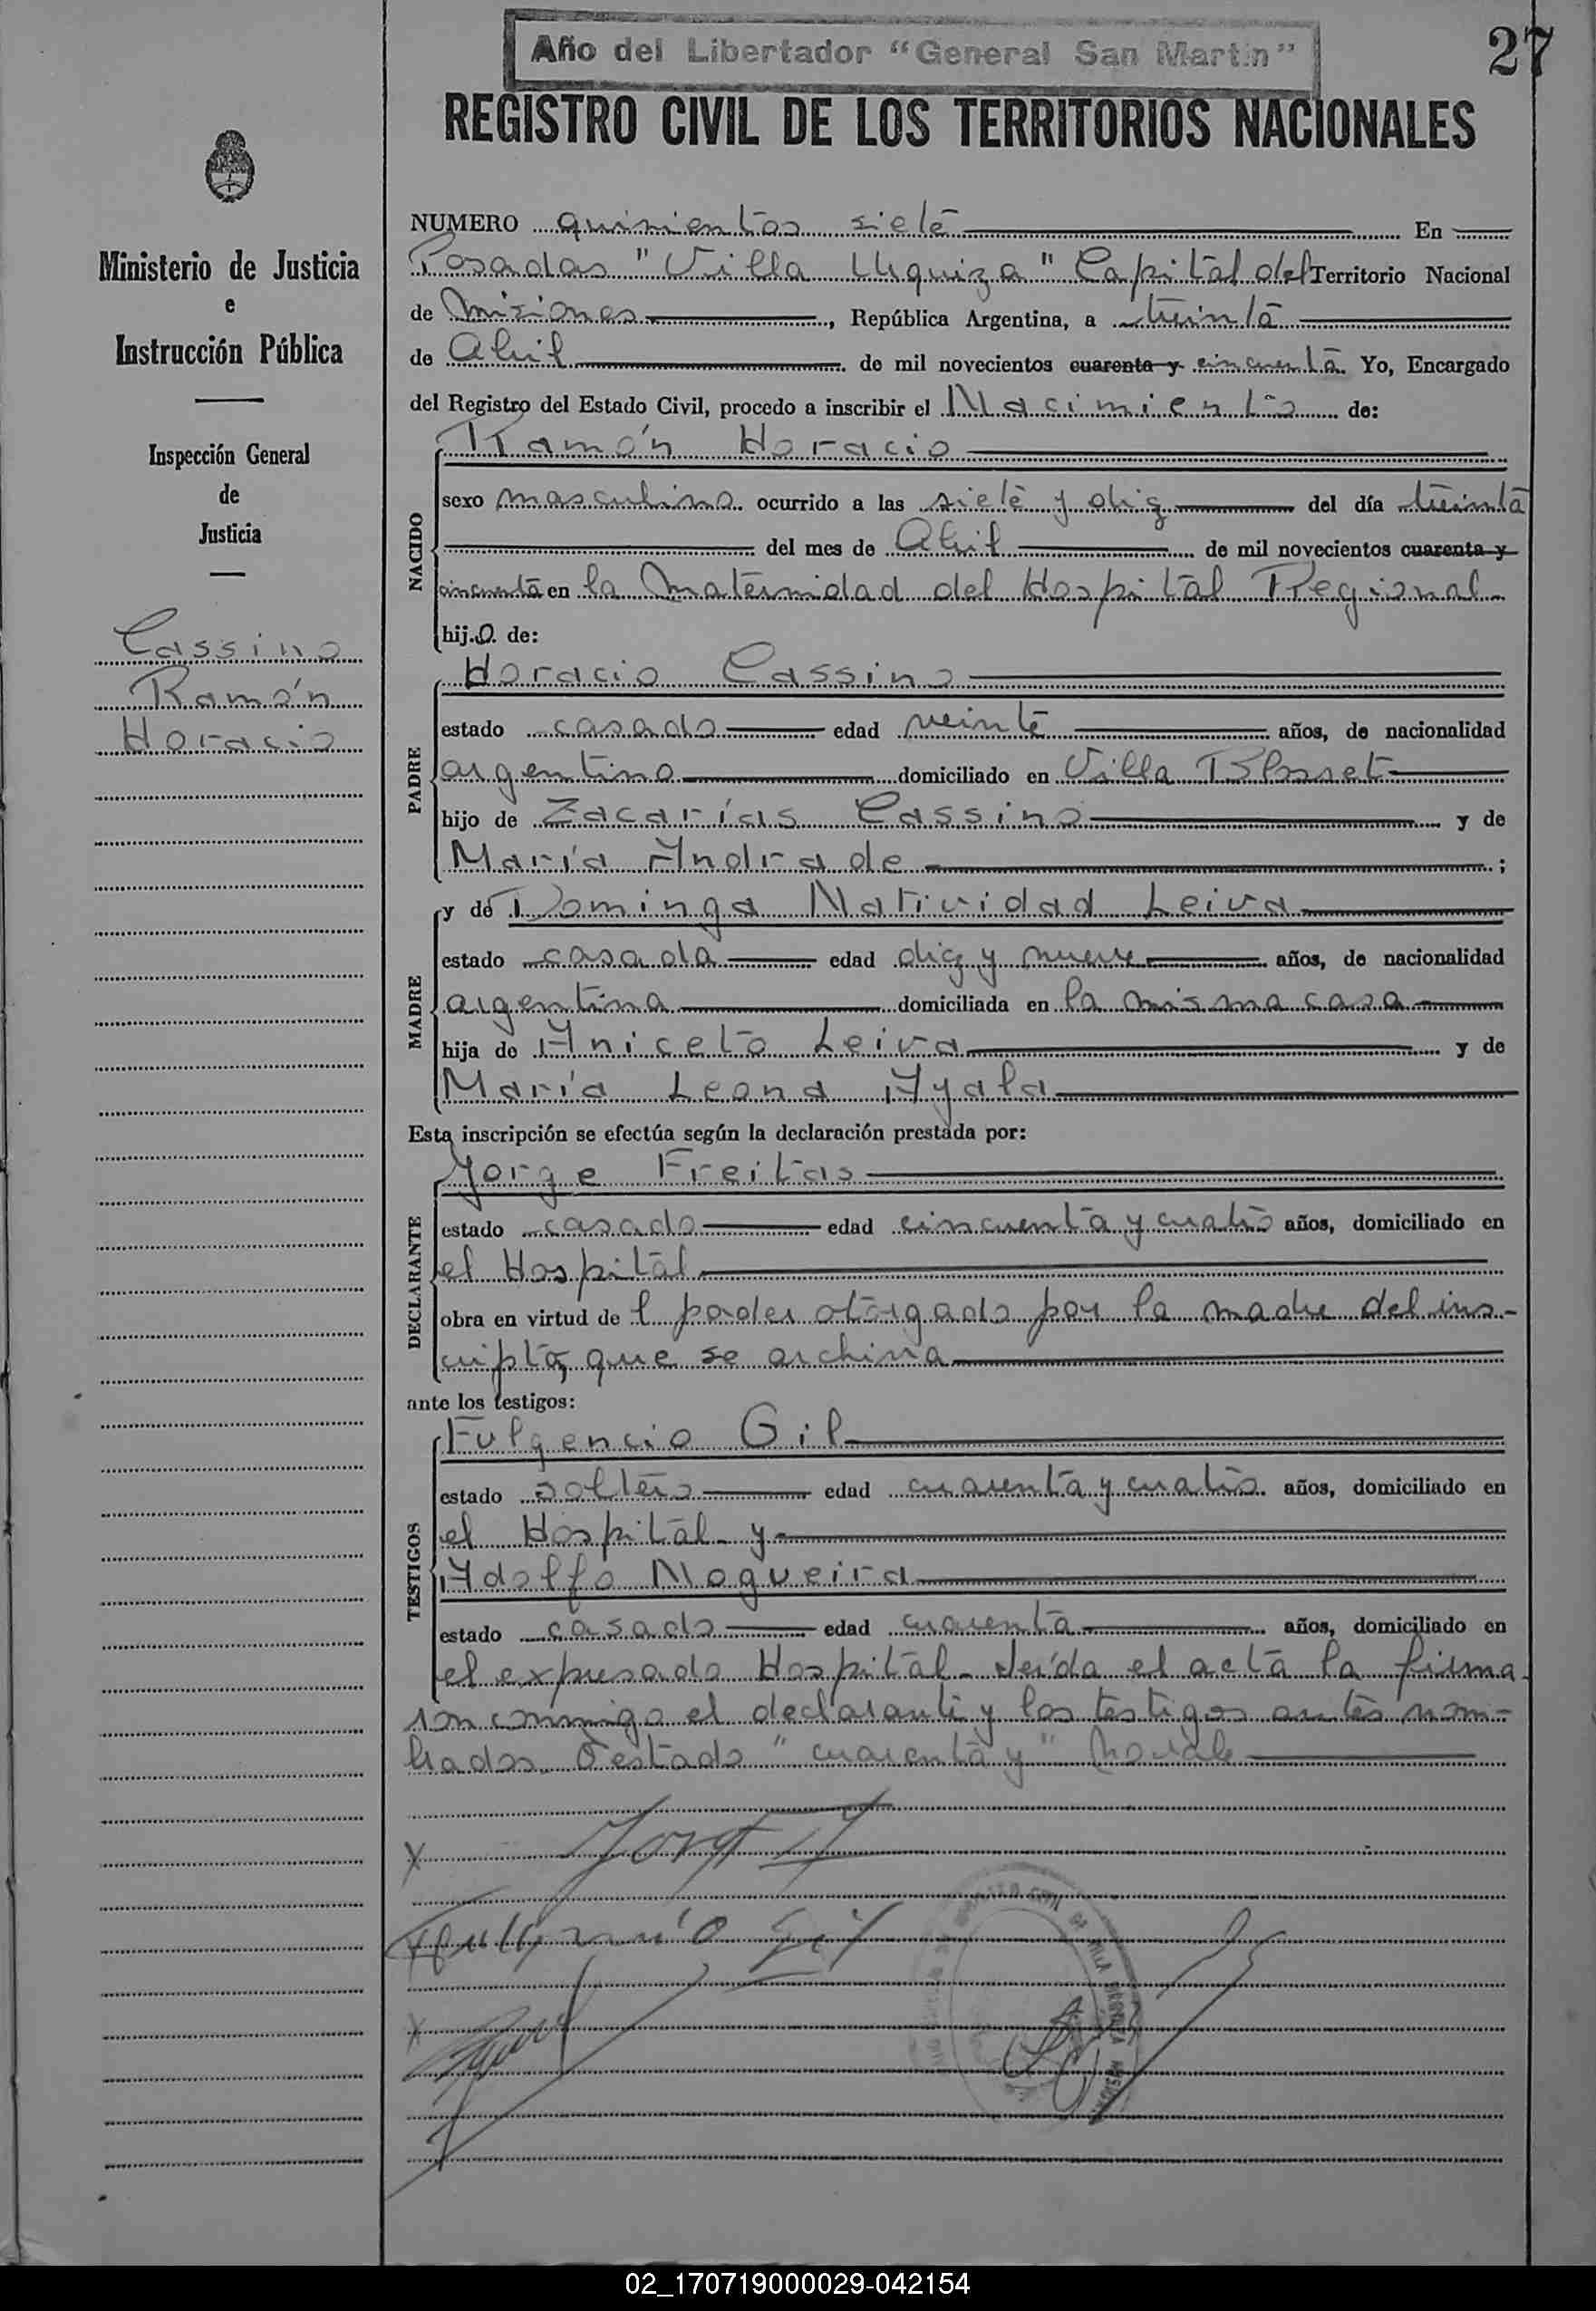 Año del Libertador “General San Martín”
27
REGISTRO CIVIL DE LOS TERRITORIOS NACIONALES
Ministerio de Justicia
e
Instrucción Pública
Inspección General
de
Justicia
Cassino
Ramón
Horacio
NUMERO quinientos siete En
Posadas "Villa Urquiza" Capital del Territorio Nacional
de Misiones, República Argentina, a treinta
de Abril de mil novecientos cuarenta y cincuenta Yo, Encargado
del Registro del Estado Civil, procedo a inscribir el Nacimiento de:
NACIDO
Ramón Horacio
sexo masculino ocurrido a las siete y diez del día treinta
del mes de Abril de mil novecientos cuarenta y
cincuenta en la Maternidad del Hospital Regional
hijo de:
PADRE
Horacio Cassino
estado casado edad veinte años, de nacionalidad
argentino domiciliado en Villa Blosset
hijo de Zacarías Cassino y de
María Andrade ;
MADRE
y de Dominga Natividad Leiva
estado casada edad diez y nueve años, de nacionalidad
argentina domiciliada en la misma casa
hija de Aniceto Leiva y de
María Leona Ayala
Esta inscripción se efectúa según la declaración prestada por:
DECLARANTE
Jorge Freitas
estado casado edad cincuenta y cuatro años, domiciliado en
el Hospital
obra en virtud de l poder otorgado por la madre del ins-
cripto, que se archiva
ante los testigos:
TESTIGOS
Fulgencio Gil
estado soltero edad cuarenta y cuatro años, domiciliado en
el Hospital y
Adolfo Nogueira
estado casado edad cuarenta años, domiciliado en
el expresado Hospital. Leída el acta la firma-
ron conmigo el declarante y los testigos antes nom-
brados. Testado "cuarenta y" No vale
Jorge F
Fulgencio Gil
02_170719000029-042154